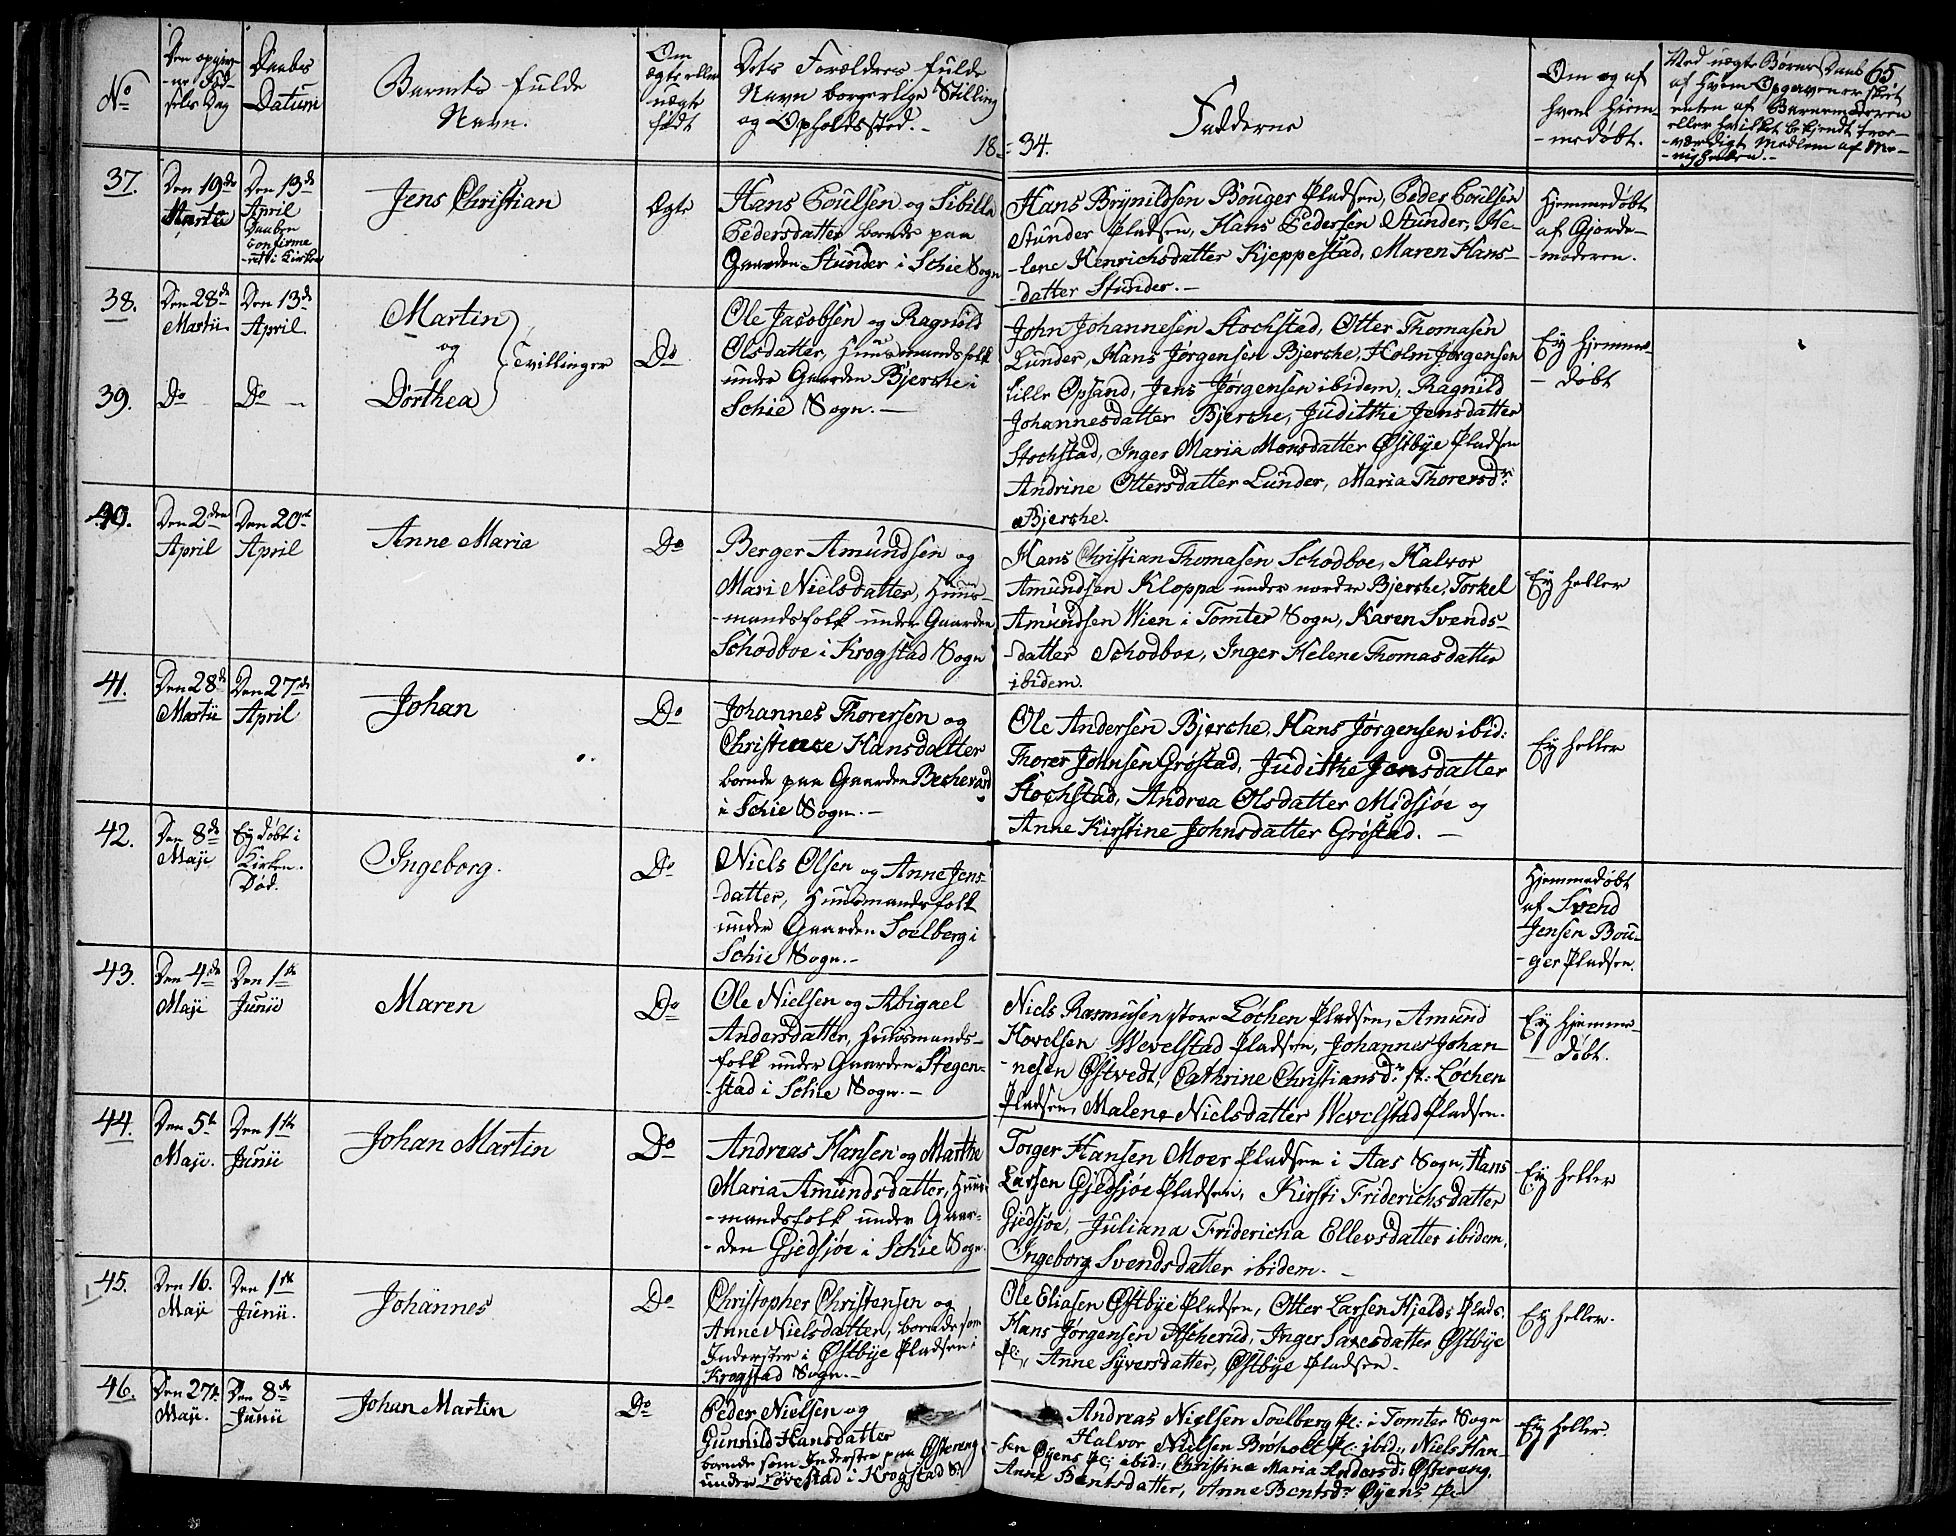 No
Den opgiv-
-ne Fød-
sels Dag
Daabs
Datum
Barnets fulde
Navn.
Om
ægte eller
uægte
født
Dets Forældres fulde
Navn borgerlige Stilling
og Opholdssted.
18
34.
Faddernes
Om og af
hvem hjem-
-medøbt.
Ved uægte Børns Daab
af hvem Opgaven er skeet
enten af Barnemoderen
eller hvilket bekjendt troe-
-værdigt Medlem af Me-
-nigheden.
65
37.
Den 19de
Martii
Den 13de
April
Daaben
confirme
-ret i Kirken
Jens Christian
Ægte
Hans Poulsen og Sibilla
Pedersdatter boende paa
Gaarden Stunder i Schie Sogn
Hans Brynildsen Bouger Pladsen, Peder Poulsen
Stunder Pladsen, Hans Pedersen Stunder, He-
-lene Henrichsdatter Kjeppestad, Maren Hans-
-datter Stunder.
Hjemmedøbt
af Gjorde-
-moderen.
38.
Den 28de
Martii
Den 13de
April
Martin
og
Tvillinger
Do
Ole Jacobsen og Ragnild
Olsdatter, Huusmandsfolk
under Gaarden Bjerche i
Schie Sogn.
John Johannesen Stochstad, Otter Thomasen
Lunder, Hans Jørgensen Bjerche, Holm Jørgensen
Lille Opsand, Jens Jørgensen ibidem, Ragnild
Johannesdatter Bjerche, Judithe Jensdatter
Stochstad, Inger Maria Monsdatter Østbye Pladsen
Andrine Ottersdatter Lunder, Maria Thorersdr:
Bjerche.
Ey hjemme-
-døbt
39.
Do
Do
Dorthea
40.
Den 2den
April
Den 20de
April
Anne Maria
Do
Berger Amundsen og
Mari Nielsdatter, Huus-
-mandsfolk under Gaarden
Schodboe i Krogstad Sogn
Hans Christian Thomasen Schodboe, Halvor
Amundsen Kloppa under nordre Bjerche, Torkel
Amundsen Wien i Tomter Sogn, Karen Svends-
-datter Schodboe, Inger Helene Thomasdatter
ibidem.
Ey heller
41.
Den 28de
Martii
Den 27de
April
Johan
Do
Johannes Thorersen og
Christence Hansdatter
boende paa Gaarden Bechevard
i Schie Sogn.
Ole Andersen Bjerche, Hans Jørgensen ibid:
Thorer Johnsen Grøstad, Judithe Jensdatter
Stochstad, Andrea Olsdatter Midsjøe og
Anne Kirstine Johnsdatter Grøstad.
Ey heller
42.
Den 8de
Maji
Ey døbt i
Kirken.
Død.
Ingeborg.
Do
Niels Olsen og Anne Jens-
-datter, Huusmandsfolk
under Gaarden Soelberg i
Schie Sogn.
Hjemmedøbt
af Svend
Jensen Bou-
-ger Pladsen.
43.
Den 4de
Maji
Den 1ste
Junii
Maren
Do
Ole Nielsen og Abigael
Andersdatter, Huusmands-
-folk under Gaarden Stegen-
-stad i Schie Sogn.
Niels Rasmusen store Løchen Pladsen, Amund
Hovelsen Wevelstad Pladsen, Johannes Johan-
-nesen Østvedt, Cathrine Christiansdr: st: Løchen
Pladsen, Malene Nielsdatter Wevelstad Pladsen.
Ey hjemme-
-døbt.
44.
Den 5te
Maji.
Den 1ste
Junii
Johan Martin
Do
Andreas Hansen og Marthe
Maria Amundsdatter, Huus-
-mandsfolk under Gaar-
-den Gjedsjøe i Schie Sogn.
Torger Hansen Moer Pladsen i Aas Sogn, Hans
Larsen Gjedsjøe Pladsen, Kirsti Friderichsdatter
Gjedsjøe, Juliana Fridericha Ellevsdatter ibidem,
Ingeborg Svendsdatter ibidem.
Ey heller
45.
Den 16.
Maji
Den 1ste
Junii.
Johannes
Do
Christopher Christensen og
Anne Nielsdatter, boende som
Inderster i Østbye Pladsen i
Krogstad Sogn.
Ole Eliasen Østbye Pladsen, Otter Larsen Hjelds Plads:
Hans Jørgensen Ascherud, Inger Saxesdatter Østbye
Pl:, Anne Syversdatter, Østbye Pladsen.
Ey heller.
46.
Den 27de
Maji.
Den 8de
Junii
Johan Martin
Do
Peder Nielsen og
Gunnild Hansdatter
boende som Inderster paa Østereng
under Løvestad i Krogstad S:
Andreas Nielsen Soelberg Pl: i Tomter Sogn
Halvor Nielsen Brøholt Pl: ibid:, Niels Han-
-sen Øyens Pl: ibid:, Christine Maria Andersd: Østereng,
Anne Bentsdatter, Anne Bentsdr Øyens Pl:
Ey heller.